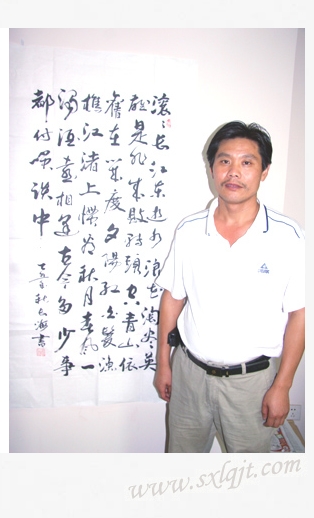 滚〻长江东逝水浪花淘尽英
雄是非成败转头空青山依
舊在几度夕阳红白发渔
樵江渚上惯看秋月春风一
濁酒喜相逢古今多少事
都付笑谈中
秋
海書
www.sxlqjt.com